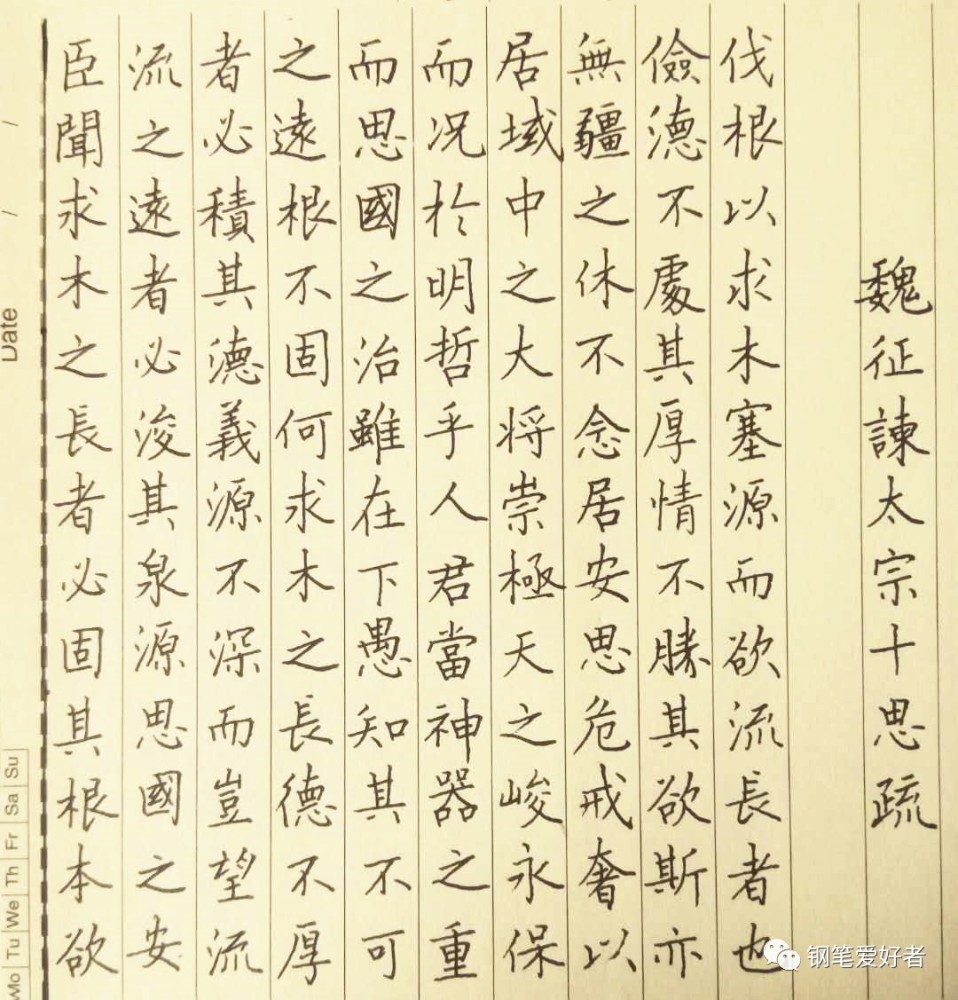 魏征諫太宗十思疏
臣聞求木之長者必固其根本欲
流之遠者必浚其泉源思國之安
者必積其德義源不深而豈望流
之遠根不固何求木之長德不厚
而思國之治雖在下愚知其不可
而况於明哲乎人君當神器之重
居域中之大将崇極天之峻永保
無疆之休不念居安思危戒奢以
儉德不處其厚情不勝其欲斯亦
伐根以求木塞源而欲流長者也
Date / /
Mo Tu We Th Fr Sa Su
钢笔爱好者